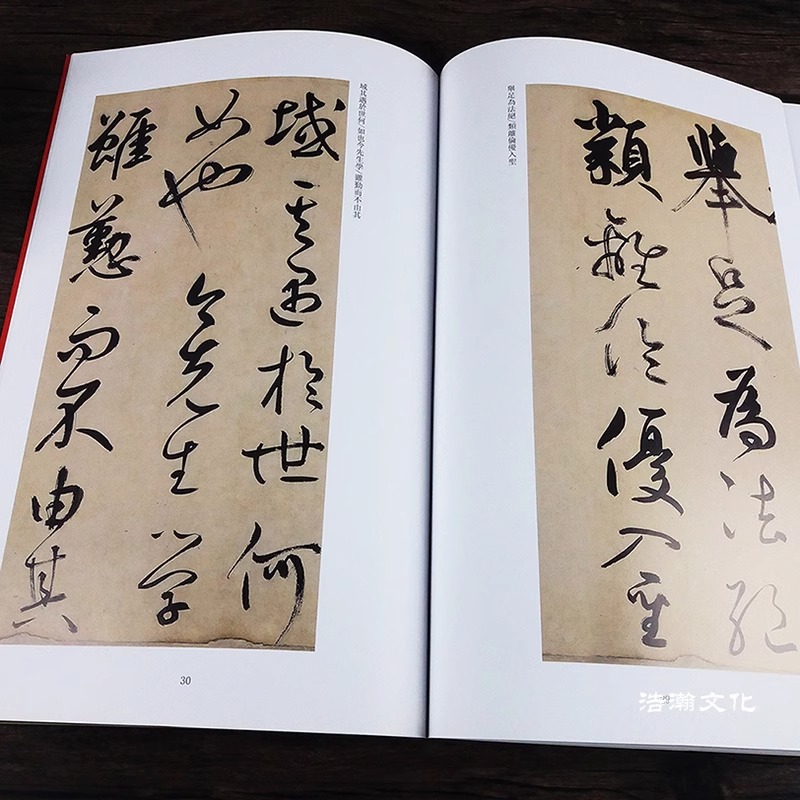 舉足為法絕
類離倫優入聖
舉足為法絕/類離倫優入聖
域其遇於世何/如也今先生學/雖勤而不由其
域其遇於世何
如也今先生學
雖勤而不由其
30
浩瀚文化